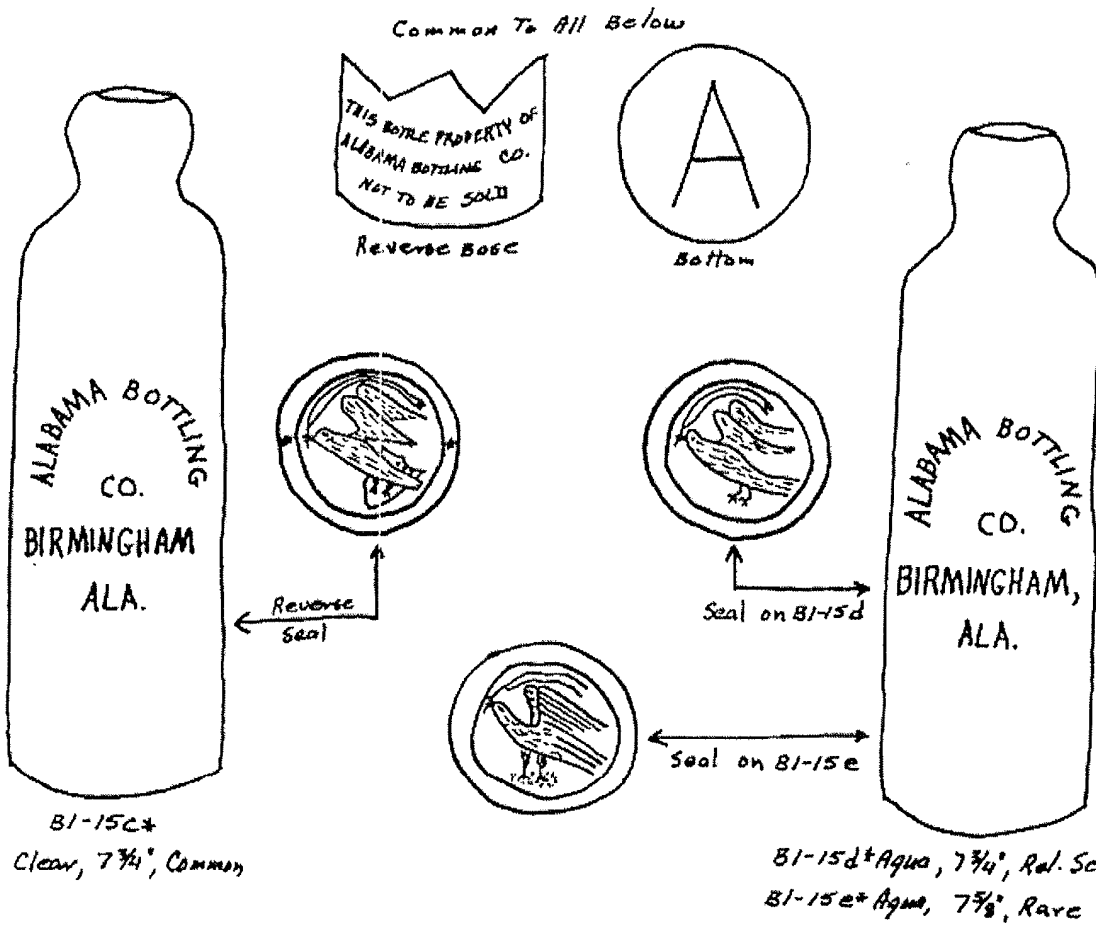 Common To All Below
THIS BOTTLE PROPERTY OF
ALABAMA BOTTLING CO.
NOT TO BE SOLD
Reverse Base
A
Bottom
ALABAMA BOTTLING
CO.
BIRMINGHAM
ALA.
Reverse
Seal
Seal on B1-15d
ALABAMA BOTTLING
CO.
BIRMINGHAM,
ALA.
Seal on B1-15e
B1-15c*
Clear, 7 3/4", Common
B1-15d* Aqua, 7 3/4", Rel. Sc
B1-15e* Aqua, 7 5/8", Rare